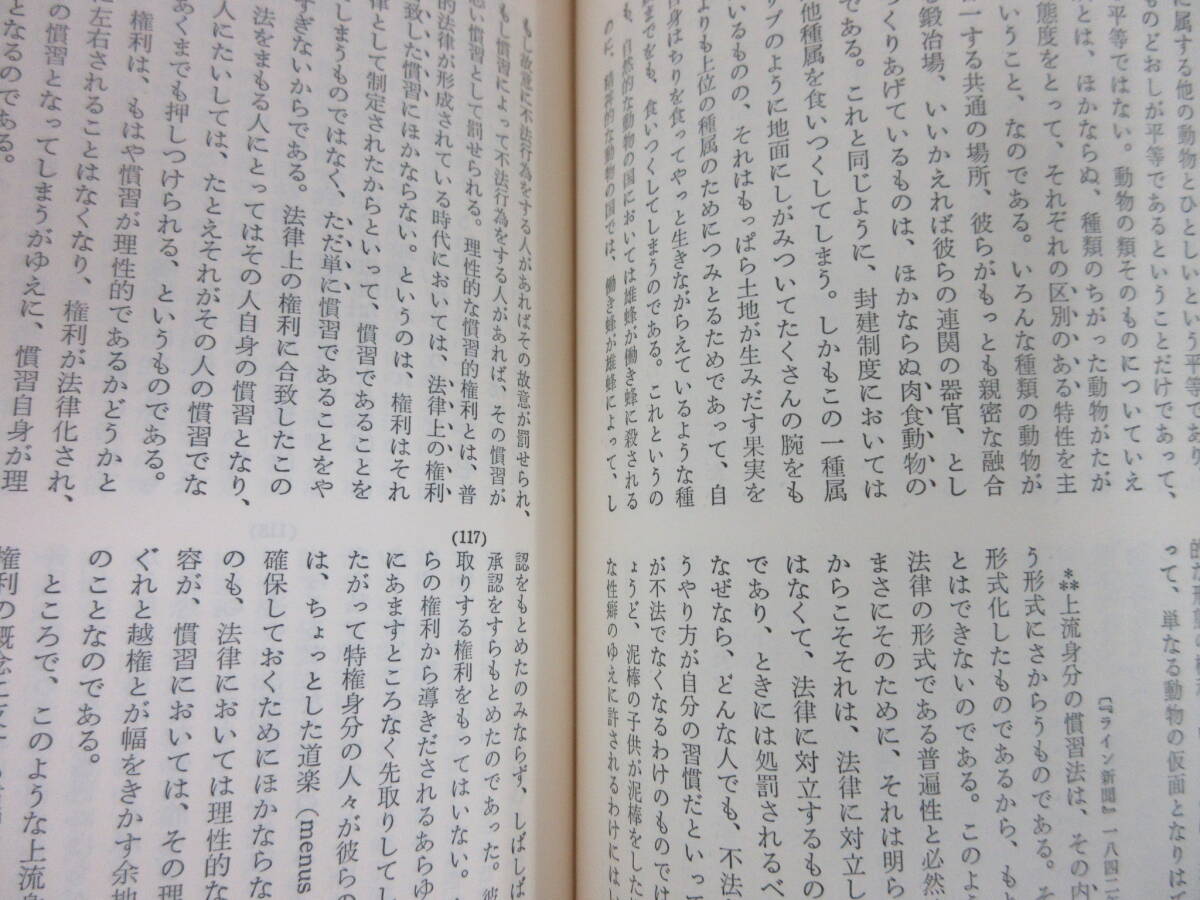 に属する他の動物とひとしいという平等であり
ものどおしが平等であるということだけであって、
平等ではない。動物の類そのものについていえ
とは、ほかならぬ、種類のちがった動物がたが
態度をとって、それぞれの区別のある特性を主
いうこと、なのである。いろんな種類の動物が
一する共通の場所、彼らがもっとも親密な融合
鍛冶場、いいかえれば彼らの連関の器官、とし
つくりあげているものは、ほかならぬ肉食動物の
である。これと同じように、封建制度においては
他種属を食いつくしてしまう。しかもこの一種属
リプのように地面にしがみついてたくさんの腕をも
いるものの、それはもっぱら土地が生みだす果実を
よりも上位の種属のためにつみとるためであって、自
自身はちりを食ってやっと生きながらえているような種
までをも、食いつくしてしまうのである。これというの
も、自然的な動物の国においては雄蜂が働き蜂に殺される
のだ、精神的な動物の国では、働き蜂が雄蜂によって、し
って、単なる動物の仮面となりはて
〔『ライン新聞』一八四二年
***上流身分の慣習法は、その内
う形式にさからうものである。そ
形式化したものであるから、もと
とはできないのである。このよ
法律の形式である普遍性と必然
まさにそのために、それは明ら
からこそそれは、法律に対立し
はなくて、法律に対立するもの
であり、ときには処罰されるべ
なぜなら、どんな人でも、不法
うやり方が自分の習慣だといっ
が不法でなくなるわけのものでは
ょうど、泥棒の子供が泥棒をしたが
な性癖のゆえに許されるわけにはい
もし故意に不法行為をする人があればその故意が罰せられ、
もし慣習によって不法行為をする人があれば、その慣習が
悪い慣習として罰せられる。理性的な慣習的権利とは、普
的法律が形成されている時代においては、法律上の権利
致した慣習にほかならない。というのは、権利はそれ
律として制定されたからといって、慣習であることを
しまうものではなく、ただ単に慣習であることをや
すぎないからである。法律上の権利に合致したこの
法をまもる人にとってはその人自身の慣習となり、
人にたいしては、たとえそれがその人の慣習でな
あくまでも押しつけられる、というものである。
権利は、もはや慣習が理性的であるかどうかと
に左右されることはなくなり、権利が法律化され、
の慣習となってしまうがゆえに、慣習自身が理
となるのである。
(117)
認をもとめたのみならず、しばしば
承認をすらもとめたのであった。彼
取りする権利をもってはいない。
らの権利から導きだされるあらゆ
にあますところなく先取りしてし
たがって特権身分の人々が彼らの
は、ちょっとした道楽（menus
確保しておくためにほかならな
のも、法律においては理性的な
容が、慣習においては、その理
ぐれと越権とが幅をきかす余地
のことなのである。
ところで、このような上流身
権利の概念に